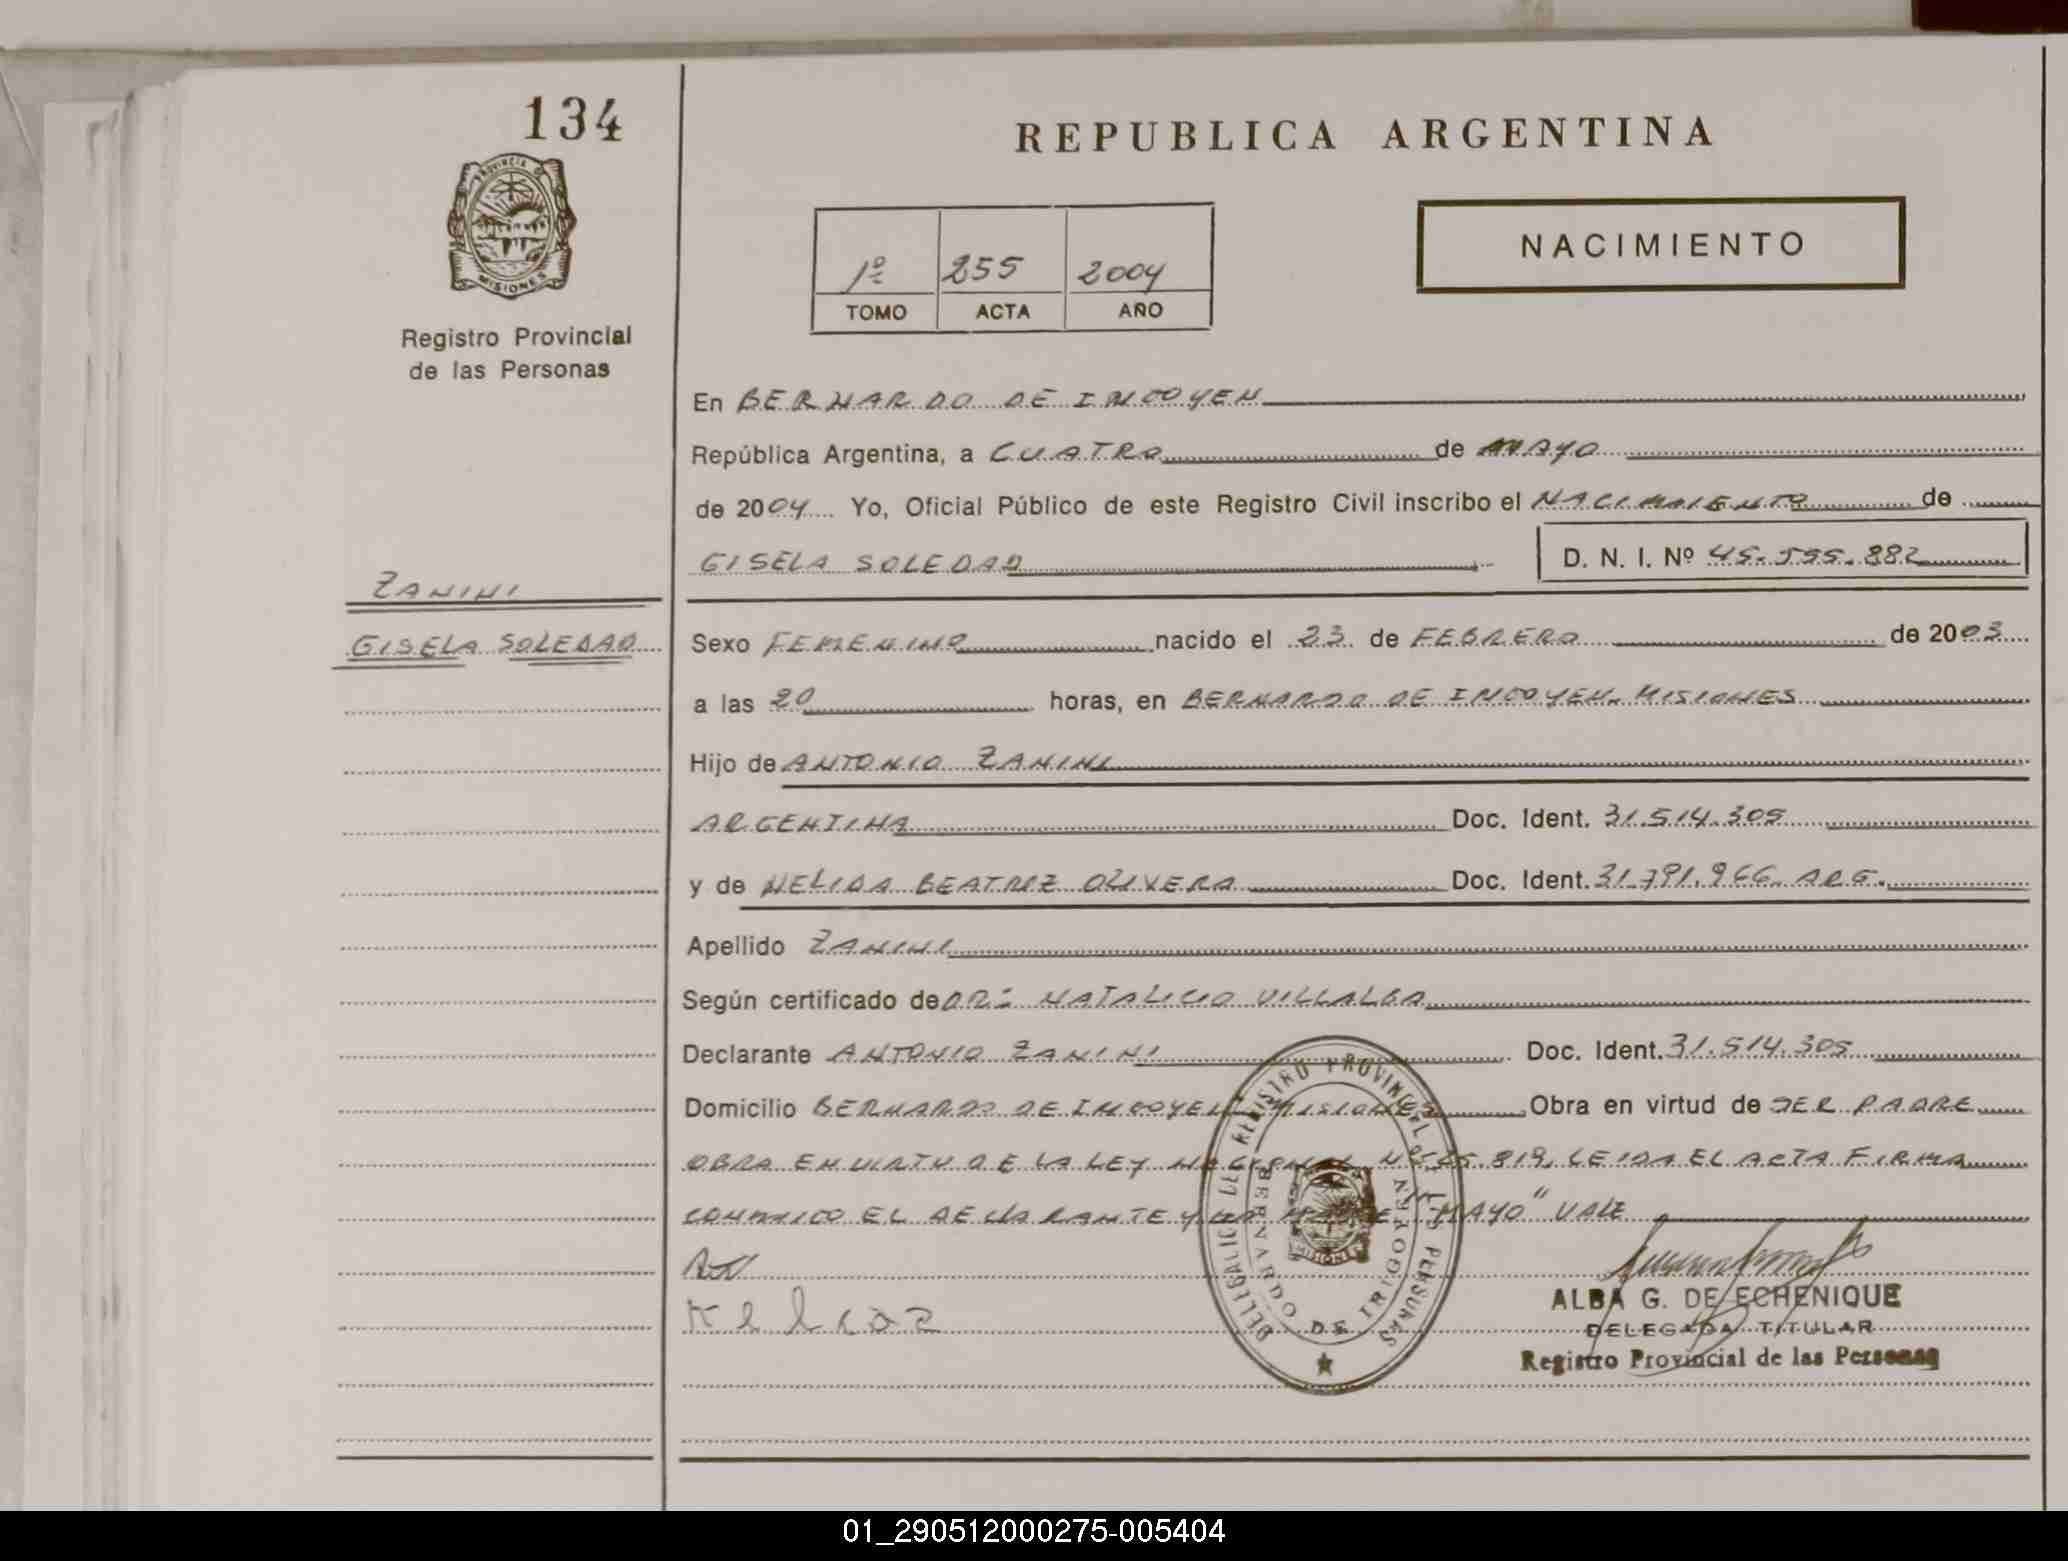 134
PROVINCIA DE
MISIONES
Registro Provincial
de las Personas
ZANINI
GISELA SOLEDAD
REPUBLICA ARGENTINA
1º 255 2004
TOMO ACTA AÑO
NACIMIENTO
En BERNARDO DE IRIGOYEN
República Argentina, a CUATRO de MAYO
de 2004 Yo, Oficial Público de este Registro Civil inscribo el NACIMIENTO de
GISELA SOLEDAD D. N. I. Nº 45.595.882
Sexo FEMENINO nacido el 23 de FEBRERO de 2003
a las 20 horas, en BERNARDO DE IRIGOYEN. MISIONES
Hijo de ANTONIO ZANINI
ARGENTINA Doc. Ident. 31.514.305
y de NELIDA BEATRIZ OLIVERA Doc. Ident. 31.791.966. ARG.
Apellido ZANINI
Según certificado de DR: NATALICIO VILLALBA
Declarante ANTONIO ZANINI Doc. Ident. 31.514.305
Domicilio BERNARDO DE IRIGOYEN MISIONES Obra en virtud de SER PADRE
OBRA EN VIRTU DE LA LEY NACIONAL Nº 25.819. LEIDA EL ACTA FIRMA
CONMIGO EL DECLARANTE Y LA MADRE "MAYO" VALE
ALBA G. DE ECHENIQUE
DELEGADA TITULAR
Registro Provincial de las Personas
BERNARDO DE IRIGOYEN
MISIONES
01_290512000275-005404